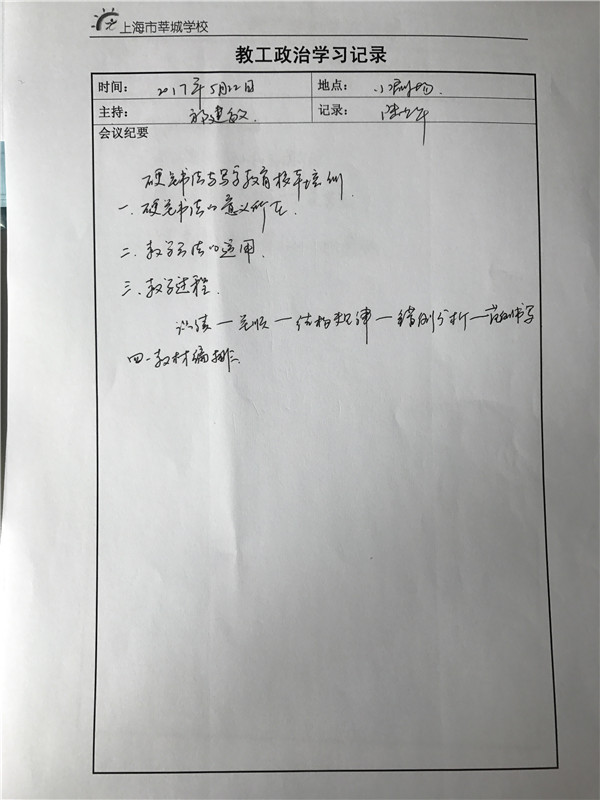 上海市莘城学校
教工政治学习记录
时间： 2017年5月22日 地点： 小剧场
主持： 郭建敏 记录：
会议纪要
硬笔书法与写字教育校本培训
一、硬笔书法的意义所在
二、教学方法的运用
三、教学过程
训练—笔顺—结构规律—错例分析—范例书写
四、教材编排